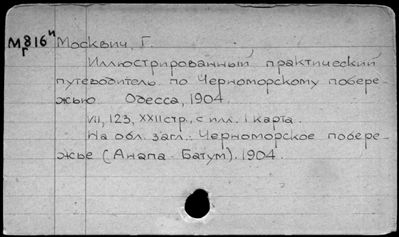 М 816 и Москвич, Г.
г
Иллюстрированный практический
путеводитель по Черноморскому побере-
жью. Одесса, 1904.
VII, 123, XXII стр., с илл. 1 карта.
На обл. загл.: Черноморское побере-
жье (Анапа - Батум). 1904.